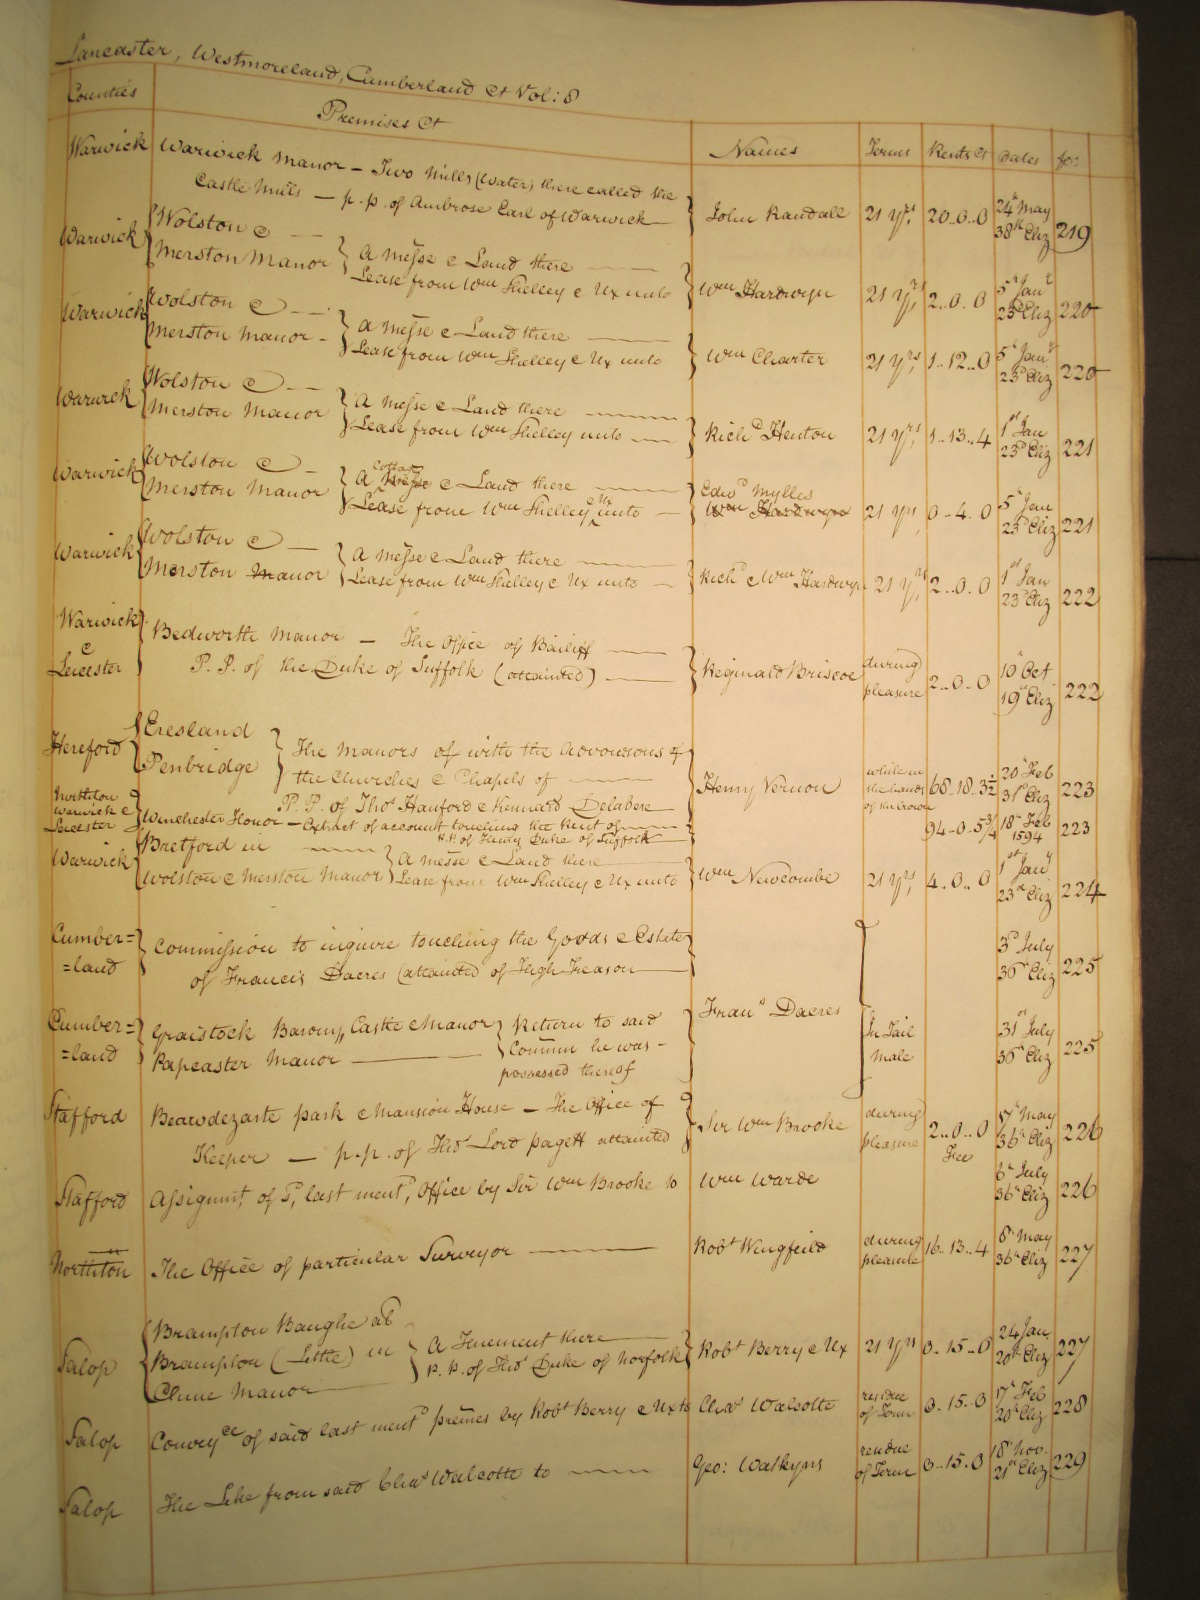 Lancaster, Westmoreland, Cumberland &c Vol: 8
Counties Premises &c Names Terms Rents &c Dates fo:
Warwick Warwick Manor – Two Mills (Water) there called the
Castle Mills – p.p. of Ambrose Earl of Warwick John Randall 21 yrs 20..0..0 24th May 38th Eliz 219
Warwick Wolston &
Merston Manor A messe & Land there
Lease from Wm Shelley & Ux unto Wm Hardwyn 21 yrs 2..0..0 5th Jany 23d Eliz 220
Warwick Wolston &
Merston Manor A messe & Land there
Lease from Wm Shelley & Ux unto Wm Charter 21 yrs 1..12..0 5th Jany 23d Eliz 220
Warwick Wolston &
Merston Manor A messe & Land there
Lease from Wm Shelley unto Richd Henton 21 yrs 1..13..4 1st Jan 23d Eliz 221
Warwick Wolston &
Merston Manor A Cottage messe & Land there
Lease from Wm Shelley & Ux unto Edwd Mylles Wm Hardwyn 21 yrs 0..4..0 5th Jan 23d Eliz 221
Warwick Wolston &
Merston Manor A messe & Land there
Lease from Wm Shelley & Ux unto Richd & Wm Hardwyn 21 yrs 2..0..0 1st Jan 23d Eliz 222
Warwick & Leicester Bedworth Manor – The Office of Bailiff
P.P. of the Duke of Suffolk (attainted) Reginald Briscoe during pleasure 2..0..0 10th Oct 19th Eliz 222
Hereford Eresland
Penbridge The Manors of with the Advowsons of
the Churches & Chapels of
P.P. of Thos Hanford & Kennard Delabere Henry Vernon while in the hands of the Crown 68..18..3½ 20th Feb 31st Eliz 223
Northton Warwick & Leicester Winchester Honor – Extract of account touching the Rent of
p.p. of Henry Duke of Suffolk 94..0..5¾ 18th Feb 1594 223
Warwick Bretford in
Wolston & Merston Manor A messe & Land there
Lease from Wm Shelley & Ux unto Wm Newcombe 21 yrs 4..0..0 1st Jany 23d Eliz 224
Cumber=
=land Commission to inquire touching the Goods & Estate
of Francis Dacres (attainted of High Treason 3d July 36th Eliz 225
Cumber=
=land Graistock Barony, Castle & Manor
Papcaster Manor Return to said
Commn he was –
possessed thereof Frans Dacres In Tail Male 31st July 36th Eliz 225
Stafford Beawdezarte park & Mansion House – The Office of
Keeper – p.p. of Thos Lord pagett attainted Sir Wm Brooke during pleasure 2..0..0 Fee 17th May 36th Eliz 226
Stafford Assignmt of sd last mentd Office by Sir Wm Brooke to Wm Warde 6th July 36th Eliz 226
Northton The Office of particular Surveyor Robt Wingfeild during pleasure 16..13..4 8th May 36th Eliz 227
Salop Brampton Banghe als
Brampton (Little) in
Clune Manor A Tenement there
p.p. of Thos Duke of Norfolk Robt Berry & Ux 21 yrs 0..15..0 24 Jan 20th Eliz 227
Salop Conveyce of said last mentd premes by Robt Berry & Ux to Chas Walcotte residue of Term 0..15..0 17th Feb 20th Eliz 228
Salop The Like from said Chas Walcotte to Geo: Watkyns residue of Term 0..15..0 18th Nov. 21st Eliz 229